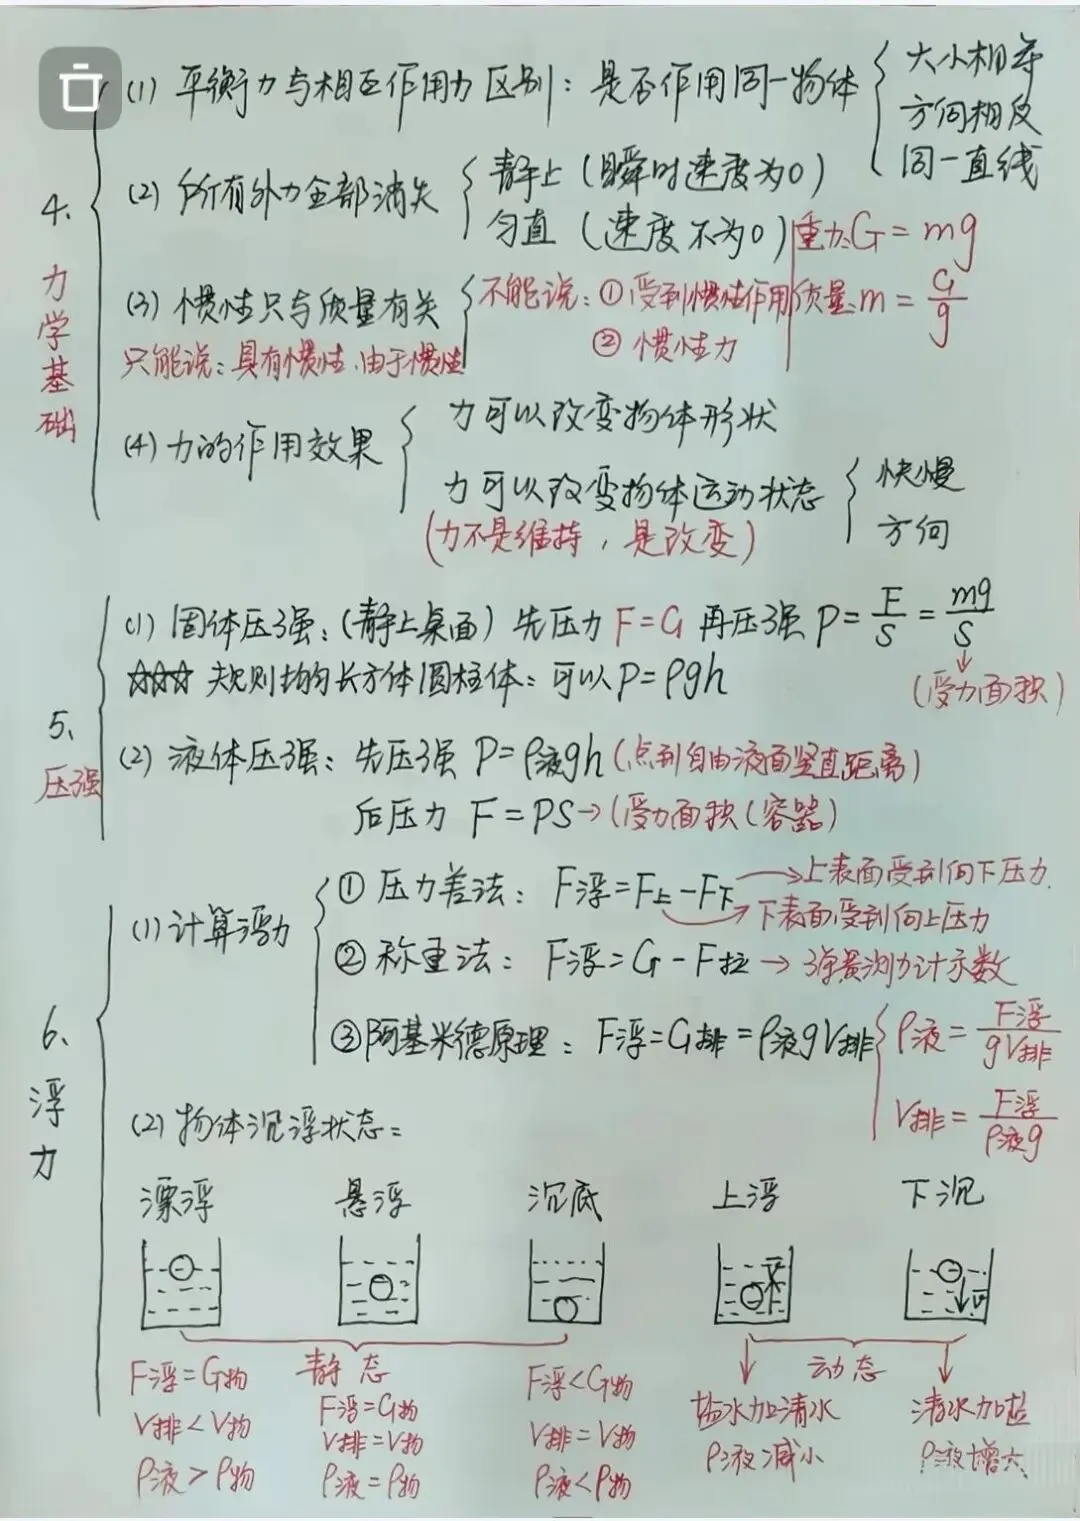 4、力学基础
(1) 平衡力与相互作用力区别：是否作用同一物体
大小相等
方向相反
同一直线
(2) 所有外力全部消失
静止（瞬时速度为0）
匀直（速度不为0）
重力:G = mg
质量:m = G/g
(3) 惯性只与质量有关
只能说：具有惯性、由于惯性
不能说：①受到惯性作用
② 惯性力
(4) 力的作用效果
力可以改变物体形状
力可以改变物体运动状态
(力不是维持，是改变)
快慢
方向
5、压强
(1) 固体压强：(静止桌面) 先压力 F=G 再压强 P= F/S = mg/S
(受力面积)
☆☆☆ 规则均匀长方体圆柱体：可以P=ρgh
(2) 液体压强：先压强 P=ρ液gh (点到自由液面竖直距离)
后压力 F=PS→(受力面积(容器)
6、浮力
(1) 计算浮力
① 压力差法： F浮=F上-F下
上表面受到向下压力.
下表面受到向上压力
② 称重法： F浮=G-F拉 → 弹簧测力计示数
③阿基米德原理： F浮=G排=ρ液gV排
ρ液 = F浮/gV排
V排 = F浮/ρ液g
(2) 物体沉浮状态：
漂浮 悬浮 沉底 上浮 下沉
V
静态
动态
F浮=G物
V排<V物
ρ液>ρ物
F浮=G物
V排=V物
ρ液=ρ物
F浮<G物
V排=V物
ρ液<ρ物
盐水加清水
ρ液减小
清水加盐
ρ液增大